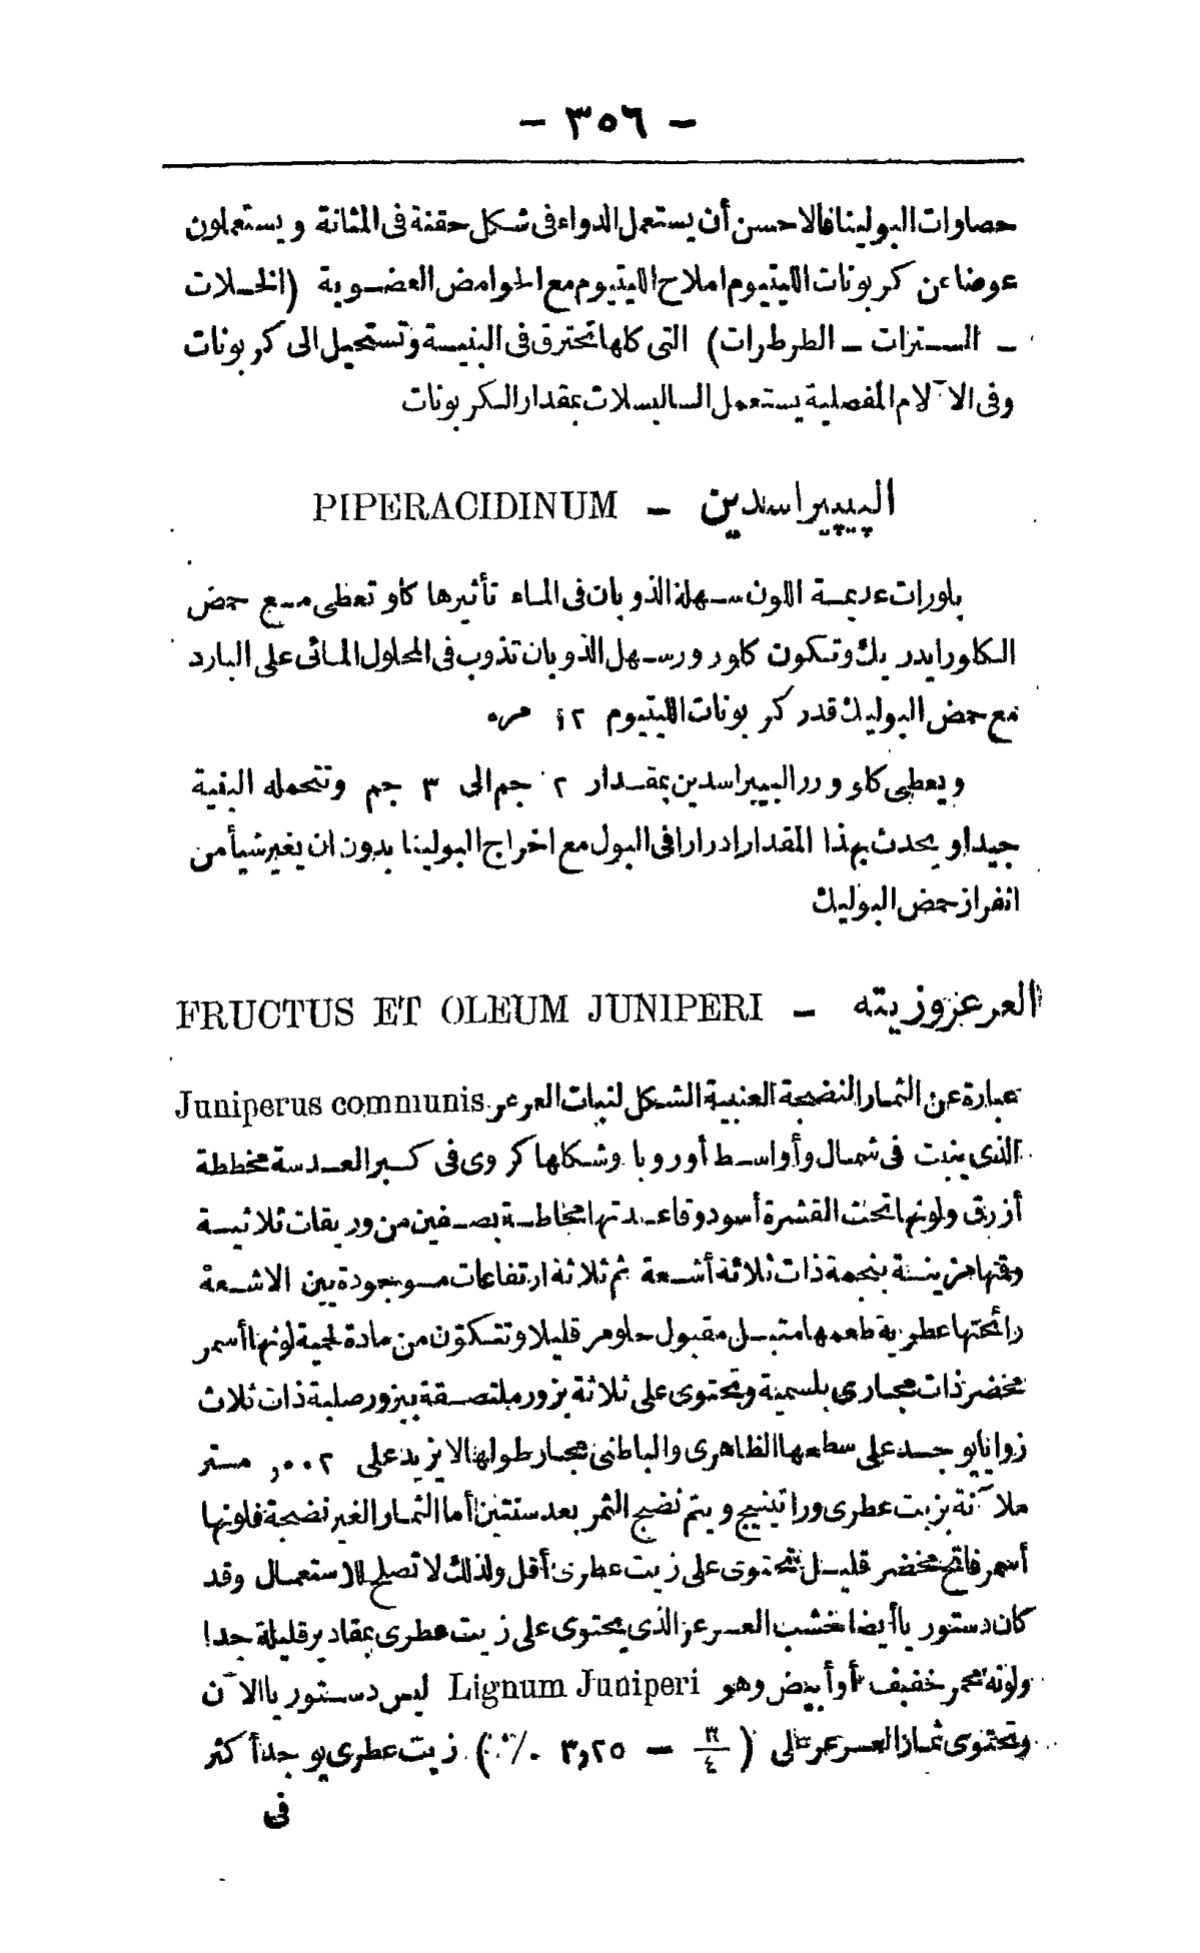 - ٣٥٦ -
حصاوات البولينا فالاحسن أن يستعمل الدواء فى شكل حقنة فى المثانة ويستعملون
عوضا عن كربونات الليتيوم املاح الليتيوم مع الحوامض العضوية (الخلات
- السترات - الطرطرات) التى كلها تحترق فى البنيسة وتستحيل الى كربونات
وفى الآلام المفصلية يستعمل الساليسلات بمقدار الكربونات
البيپيراسدين - PIPERACIDINUM
بلورات عديمة اللون سهلة الذوبان فى الماء تأثيرها كاو تعظى مع حمض
الكلورايدريك وتكون كلورور سهل الذوبان تذوب فى المحلول المائى على البارد
مع حمض البوليك قدر كربونات الليتيوم ١٢ مره
ويعطى كلورور البيبراسدين بمقدار ٢ جم الى ٣ جم وتتحمله البنية
جيدا ويحدث بهذا المقدار ادرارا فى البول مع اخراج البولينا بدون ان يغير شيأ من
انفراز حمض البوليك
العرعر وزيته - FRUCTUS ET OLEUM JUNIPERI
عبارة عن الثمار النضجة العنبية الشكل لنبات العرعر Juniperus communis
الذى ينبت فى شمال وأواسط أوروبا وشكلها كروى فى كبر العدسة مخططة
أزرق ولونها تحت القشرة أسود وقاعدتها محاطة بصفين من وريقات ثلاثية
وقتها مزينة بنجمة ذات ثلاثة أشعة ثم ثلاثة ارتفاعات موجودة بين الاشعة
رائحتها عطرية طعمها متبل مقبول حلو مر قليلا وتتكون من مادة لحمية لونها أسمر
مخضر ذات مجارى بلسمية وتحتوى على ثلاثة بزور ملتصقة ببزور صلبة ذات ثلاث
زوايا يوجد على سطحها الظاهرى والباطنى مجار طولها لا يزيد على ٠٠٢, متر
ملآنة بزيت عطرى وراتينج ويتم نضج الثمر بعد سنتين أما الثمار الغير نضجة فلونها
أسمر فاتح مخضر قليل تحتوى على زيت عطرى أقل ولذلك لا تصلح للاستعمال وقد
كان دستوريا أيضا خشب العرعر الذى يحتوى على زيت عطرى بمقادير قليلة جدا
ولونه محمر خفيف أو أبيض وهو Lignum Juniperi ليس دستوريا الآن
وتحتوى ثمار العرعر على (٣/٤ - ٣,٢٥ ٪) زيت عطرى يوجد أكثر
فى